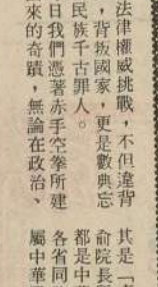 法律權威挑戰，不但違背
，背叛國家，更是數典忘
民族千古罪人。
日我們憑著赤手空拳所建
來的奇蹟，無論在政治、
其是「
俞院長
都是中
各省同
屬中華